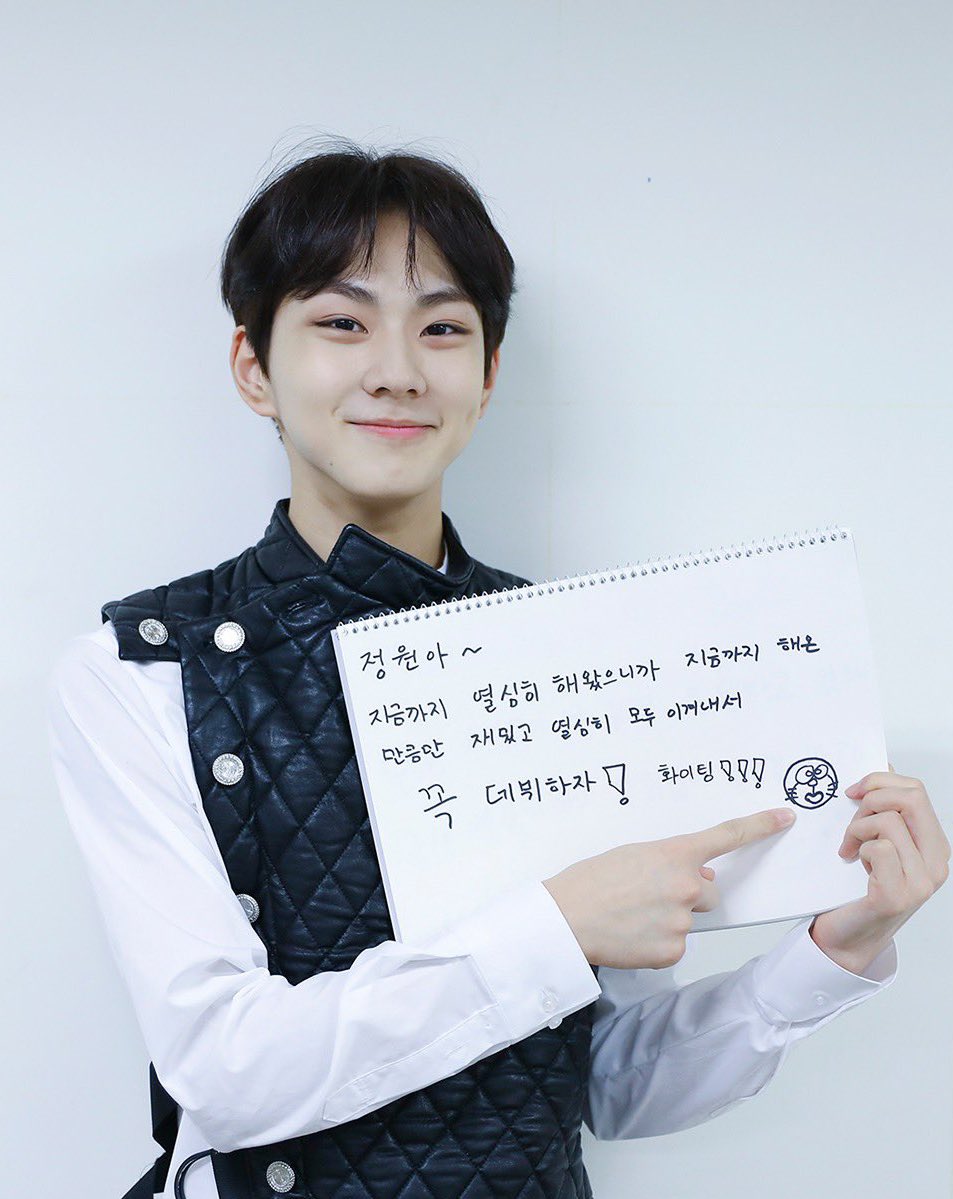 정원아 ~
지금까지 열심히 해왔으니까 지금까지 해온
만큼만 재밌고 열심히 모두 이겨내서
꼭 데뷔하자! 화이팅!!!